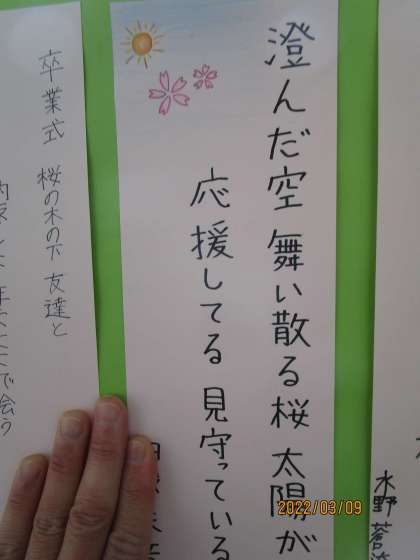 澄んだ空 舞い散る桜 太陽が
応援してる 見守っている
水野
卒業式 桜の木の下 友達と
で会う
2022/03/09